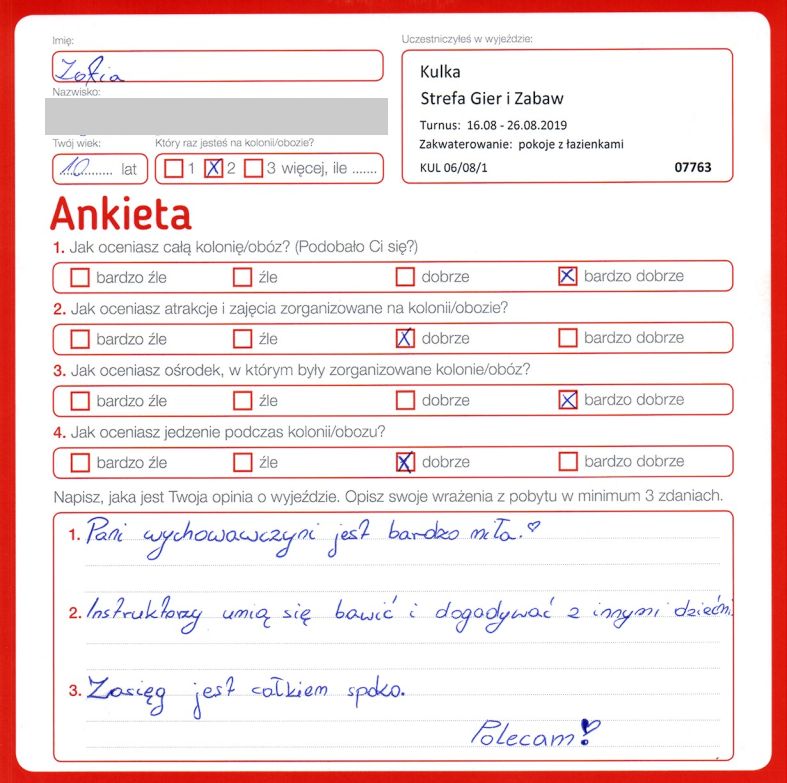 Imię:
Zofia
Nazwisko:
Twój wiek:
10 lat
Który raz jesteś na kolonii/obozie?
1 X 2 3 więcej, ile .......
Uczestniczyłeś w wyjeździe:
Kulka
Strefa Gier i Zabaw
Turnus: 16.08 - 26.08.2019
Zakwaterowanie: pokoje z łazienkami
KUL 06/08/1 07763
Ankieta
1. Jak oceniasz całą kolonię/obóz? (Podobało Ci się?)
bardzo źle źle dobrze X bardzo dobrze
2. Jak oceniasz atrakcje i zajęcia zorganizowane na kolonii/obozie?
bardzo źle źle X dobrze bardzo dobrze
3. Jak oceniasz ośrodek, w którym były zorganizowane kolonie/obóz?
bardzo źle źle dobrze X bardzo dobrze
4. Jak oceniasz jedzenie podczas kolonii/obozu?
bardzo źle źle X dobrze bardzo dobrze
Napisz, jaka jest Twoja opinia o wyjeździe. Opisz swoje wrażenia z pobytu w minimum 3 zdaniach.
1. Pani wychowawczyni jest bardzo miła. ♡
2. Instruktorzy umią się bawić i dogadywać z innymi dziećmi.
3. Zasięg jest całkiem spoko.
Polecam!